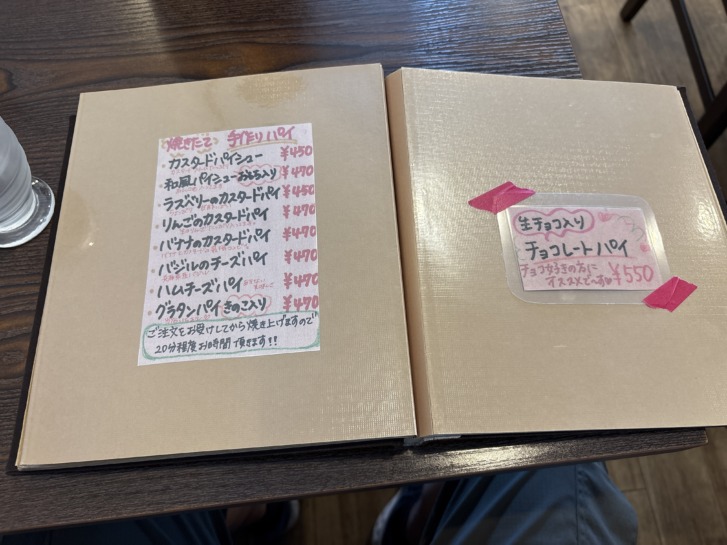 焼きたて 手作りパイ
カスタードパイシュー ¥450
和風パイシューおもち入り ¥470
ラズベリーのカスタードパイ ¥450
りんごのカスタードパイ ¥470
バナナのカスタードパイ ¥470
バジルのチーズパイ ¥470
ハムチーズパイ ¥470
グラタンパイ きのこ入り ¥470
ご注文をお受けしてから焼き上げますので
20分程度お時間頂きます!!
生チョコ入り
チョコレートパイ
チョコ好きの方に
オススメでーす ¥550